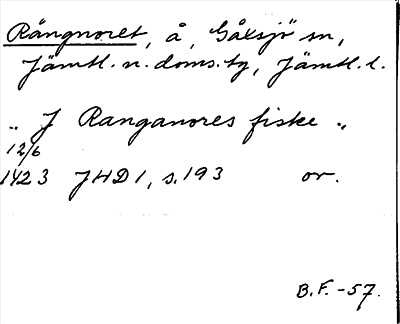 Rångnoret, å, Gåxsjö sn,
Jämtl. n. doms. tg, Jämtl. l.
„ J Ranganores fiske „
12/6
1423 JHD 1, s. 193 or.
B.F. -57.